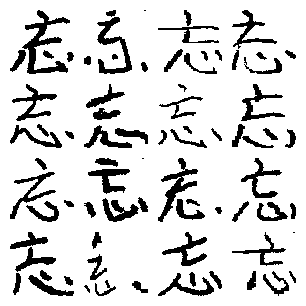 忘忘忘忘
忘忘忘忘
忘忘忘忘
忘忘忘忘